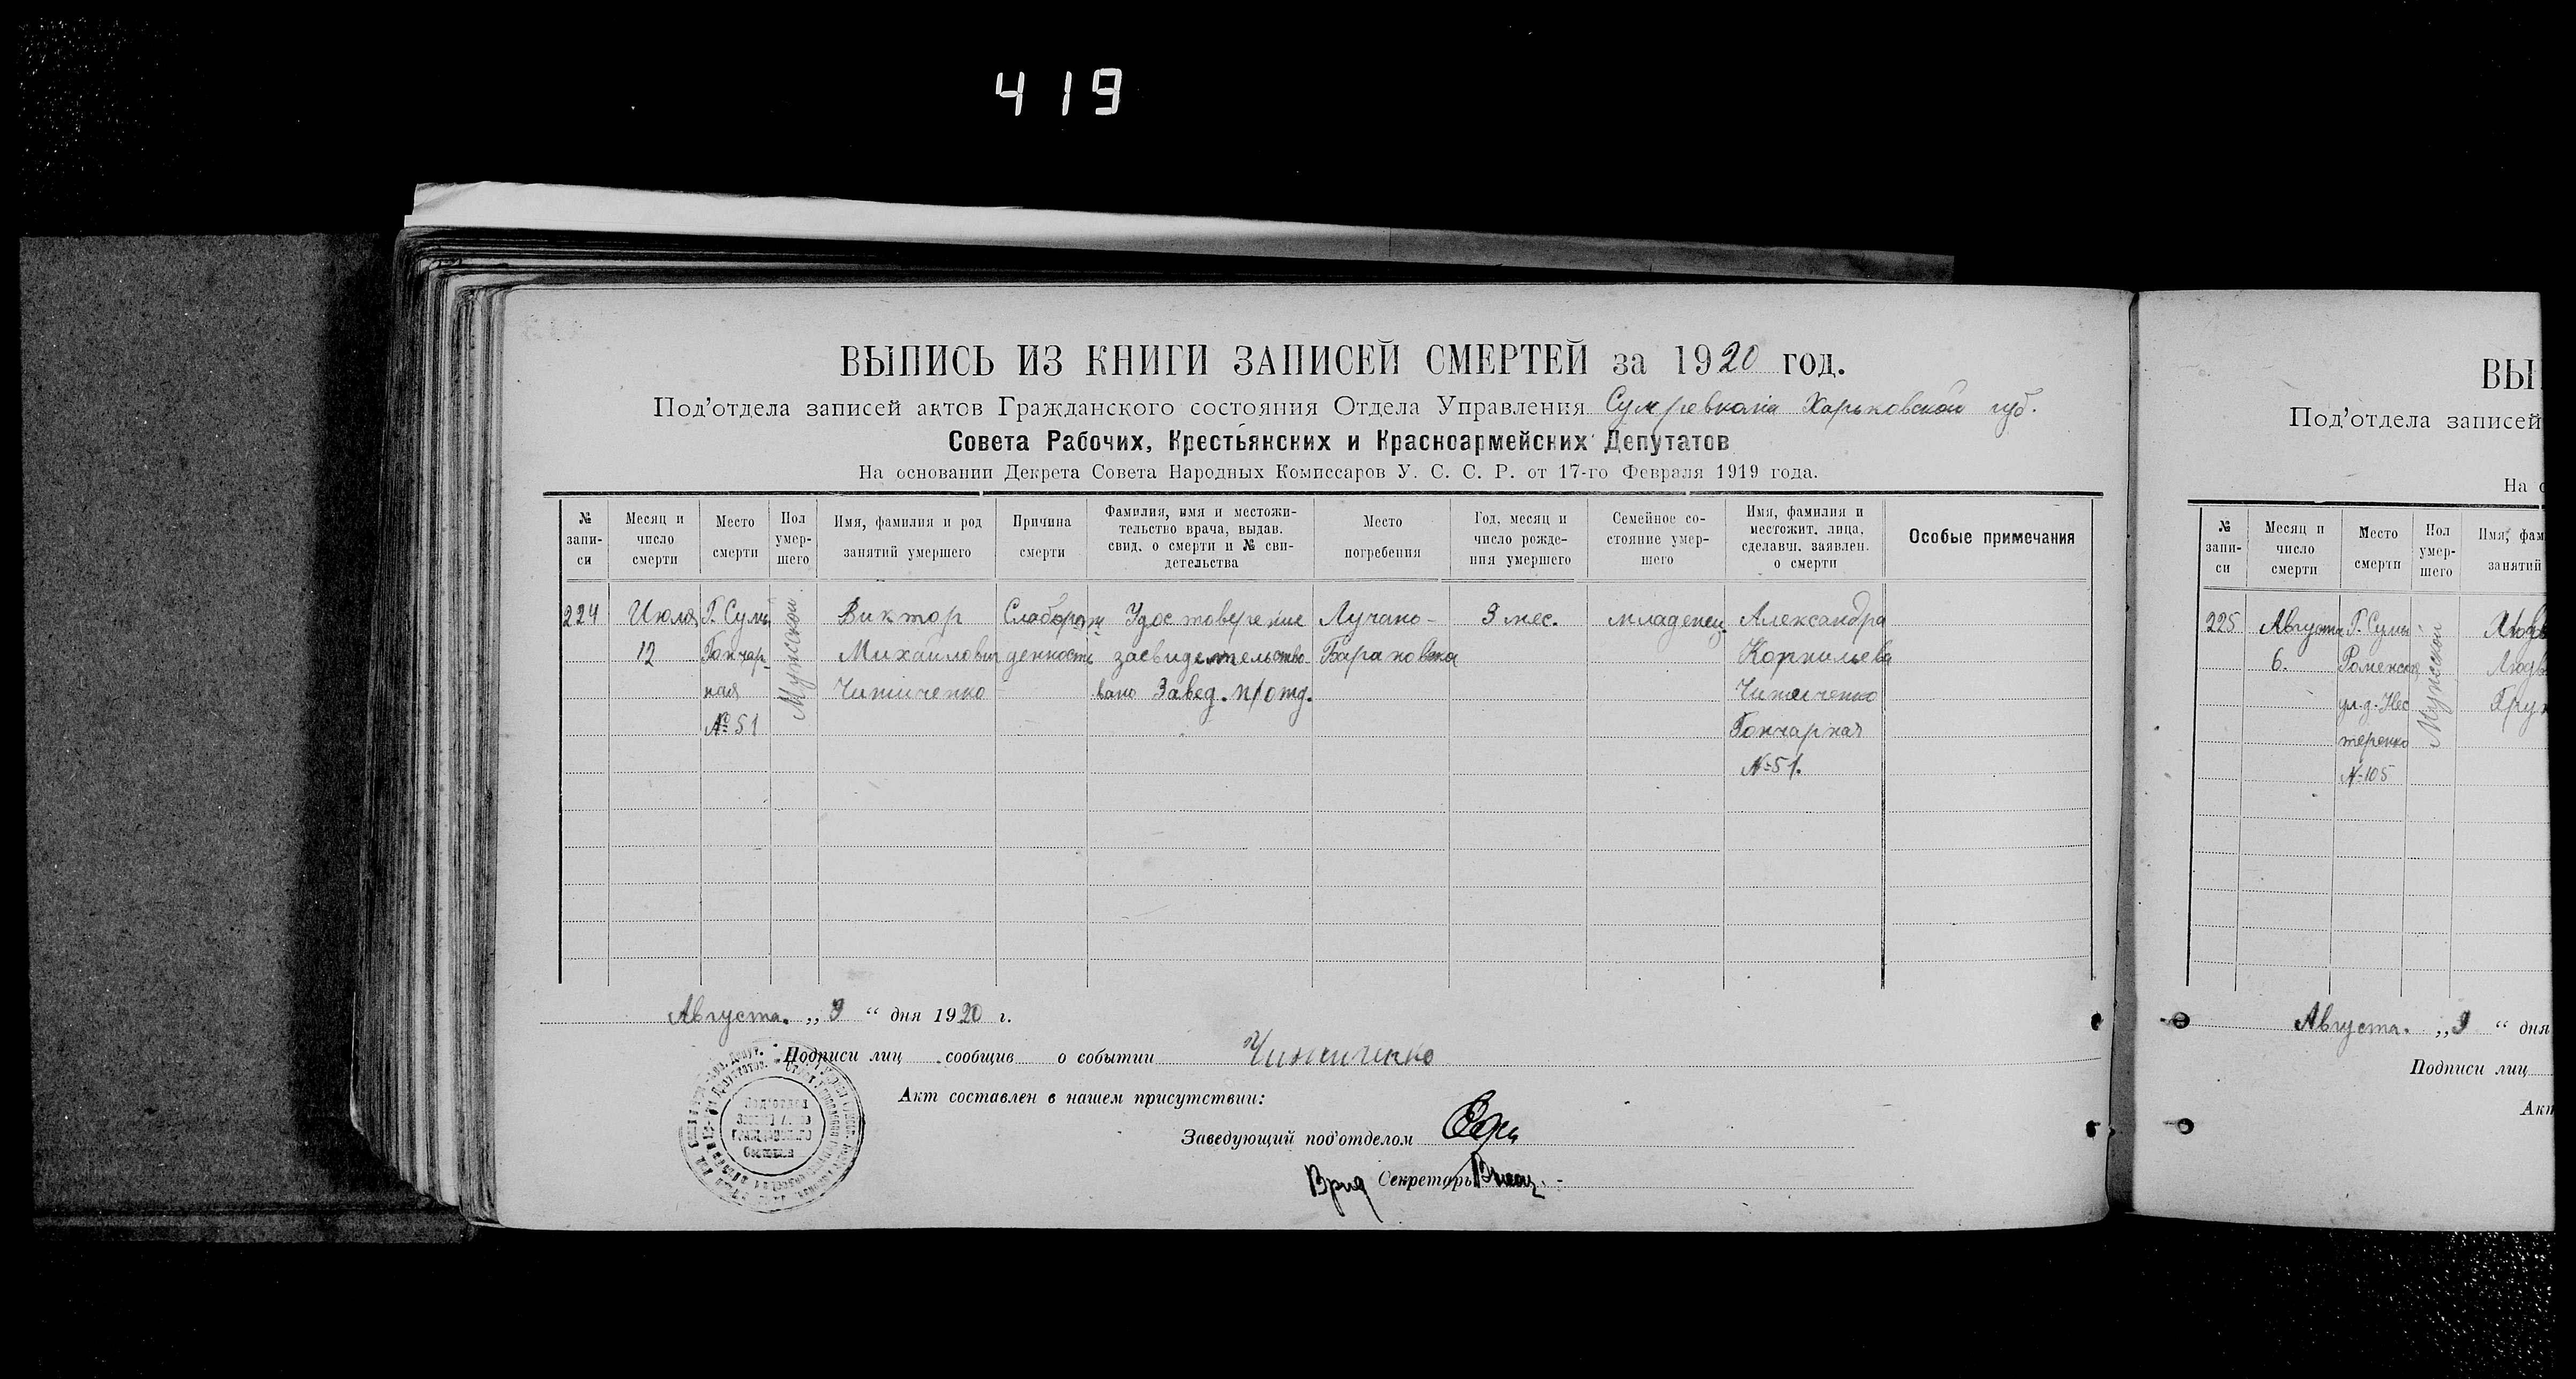 419
ВЫПИСЬ ИЗ КНИГИ ЗАПИСЕЙ СМЕРТЕЙ за 1920 год.
Под'отдела записей актов Гражданского состояния Отдела Управления Сумревкома Харьковской губ.
Совета Рабочих, Крестьянских и Красноармейских Депутатов
На основании Декрета Совета Народных Комиссаров У. С. С. Р. от 17-го Февраля 1919 года.
№ запи-
си
Месяц и
число
смерти
Место
смерти
Пол
умер-
шего
Имя, фамилия и род
занятий умершего
Причина
смерти
Фамилия, имя и местожи-
тельство врача, выдав.
свид. о смерти и № сви-
детельства
Место
погребения
Год, месяц и
число рожде-
ния умершего
Семейное со-
стояние умер-
шего
Имя, фамилия и
местожит. лица,
сделавш. заявлен.
о смерти
Особые примечания
224
Июля
12
Г. Сумы
Гончар-
ная
№ 51
Мужской.
Виктор
Михайлович
Слаборож
денность
Удостоверение
засвидетельство-
вано Завед. п/отд.
Лучано-
Барановка
3 мес.
младенец.
Александра
Корнильева
Гончарная
№ 51.
Августа. „ 9 “ дня 1920 г.
Подписи лиц сообщив о событии
Акт составлен в нашем присутствии:
Заведующий под'отделом
Врид Секретарь
Под'отдел
Состояния
ВЫ
Под'отдела записей
На
№
запи-
си
Месяц и
число
смерти
Место
смерти
Пол
умер-
шего
Имя, фам
занятий
225
Августа
6.
Г. Сумы
Роменская
ул. д. Нес
теренко
№ 105
Мужской
Августа. „ 9 “ дня
Подписи лиц
Акт